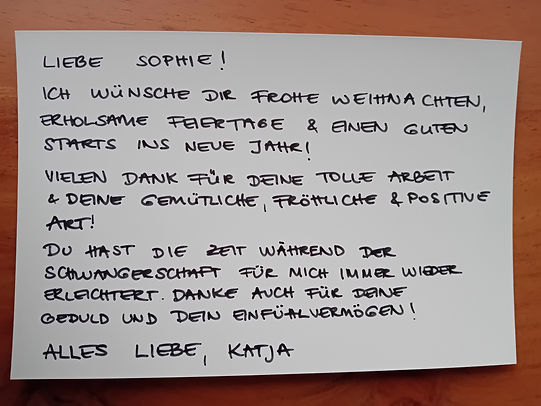 LIEBE SOPHIE!
ICH WÜNSCHE DIR FROHE WEIHNACHTEN,
ERHOLSAME FEIERTAGE & EINEN GUTEN
STARTS INS NEUE JAHR!
VIELEN DANK FÜR DEINE TOLLE ARBEIT
& DEINE GEMÜTLICHE, FRÖHLICHE & POSITIVE
ART!
DU HAST DIE ZEIT WÄHREND DER
SCHWANGERSCHAFT FÜR MICH IMMER WIEDER
ERLEICHTERT. DANKE AUCH FÜR DEINE
GEDULD UND DEIN EINFÜALVERMÖGEN!
ALLES LIEBE, KATJA